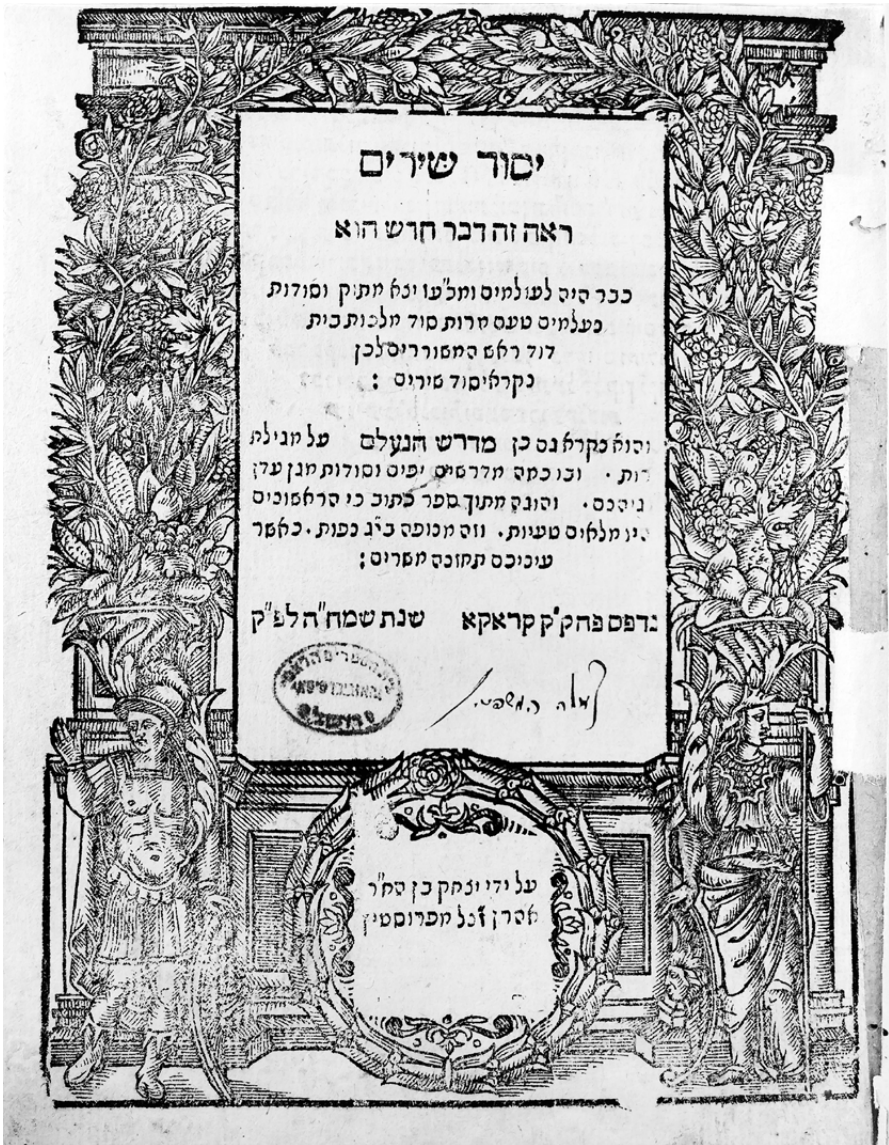 יסוד שירים
ראה זה דבר חדש הוא
כבר היה לעולמים ומל"עו יצא מתוק וסודות
נעלמים טעם מרות סוד מלכות בית
דוד ראש המשוררים לכן
נקרא יסוד שירים :
והוא נקרא גם כן מדרש הנעלם על מגילת
רות . ובו כמה מדרשים יפים וסודות מגן עדן
. והוגה מתוך ספר כתוב כי הראשונים
היו מלאים טעיות . וזה מנופה בי"ג נפות . כאשר
עיניכם תחזנה משרים :
נדפס פהק"ק קראקא שנת שמח"ה לפ"ק
על ידי יצחק בן הח"ר
אהרן ז"ל מפרוסטיץ